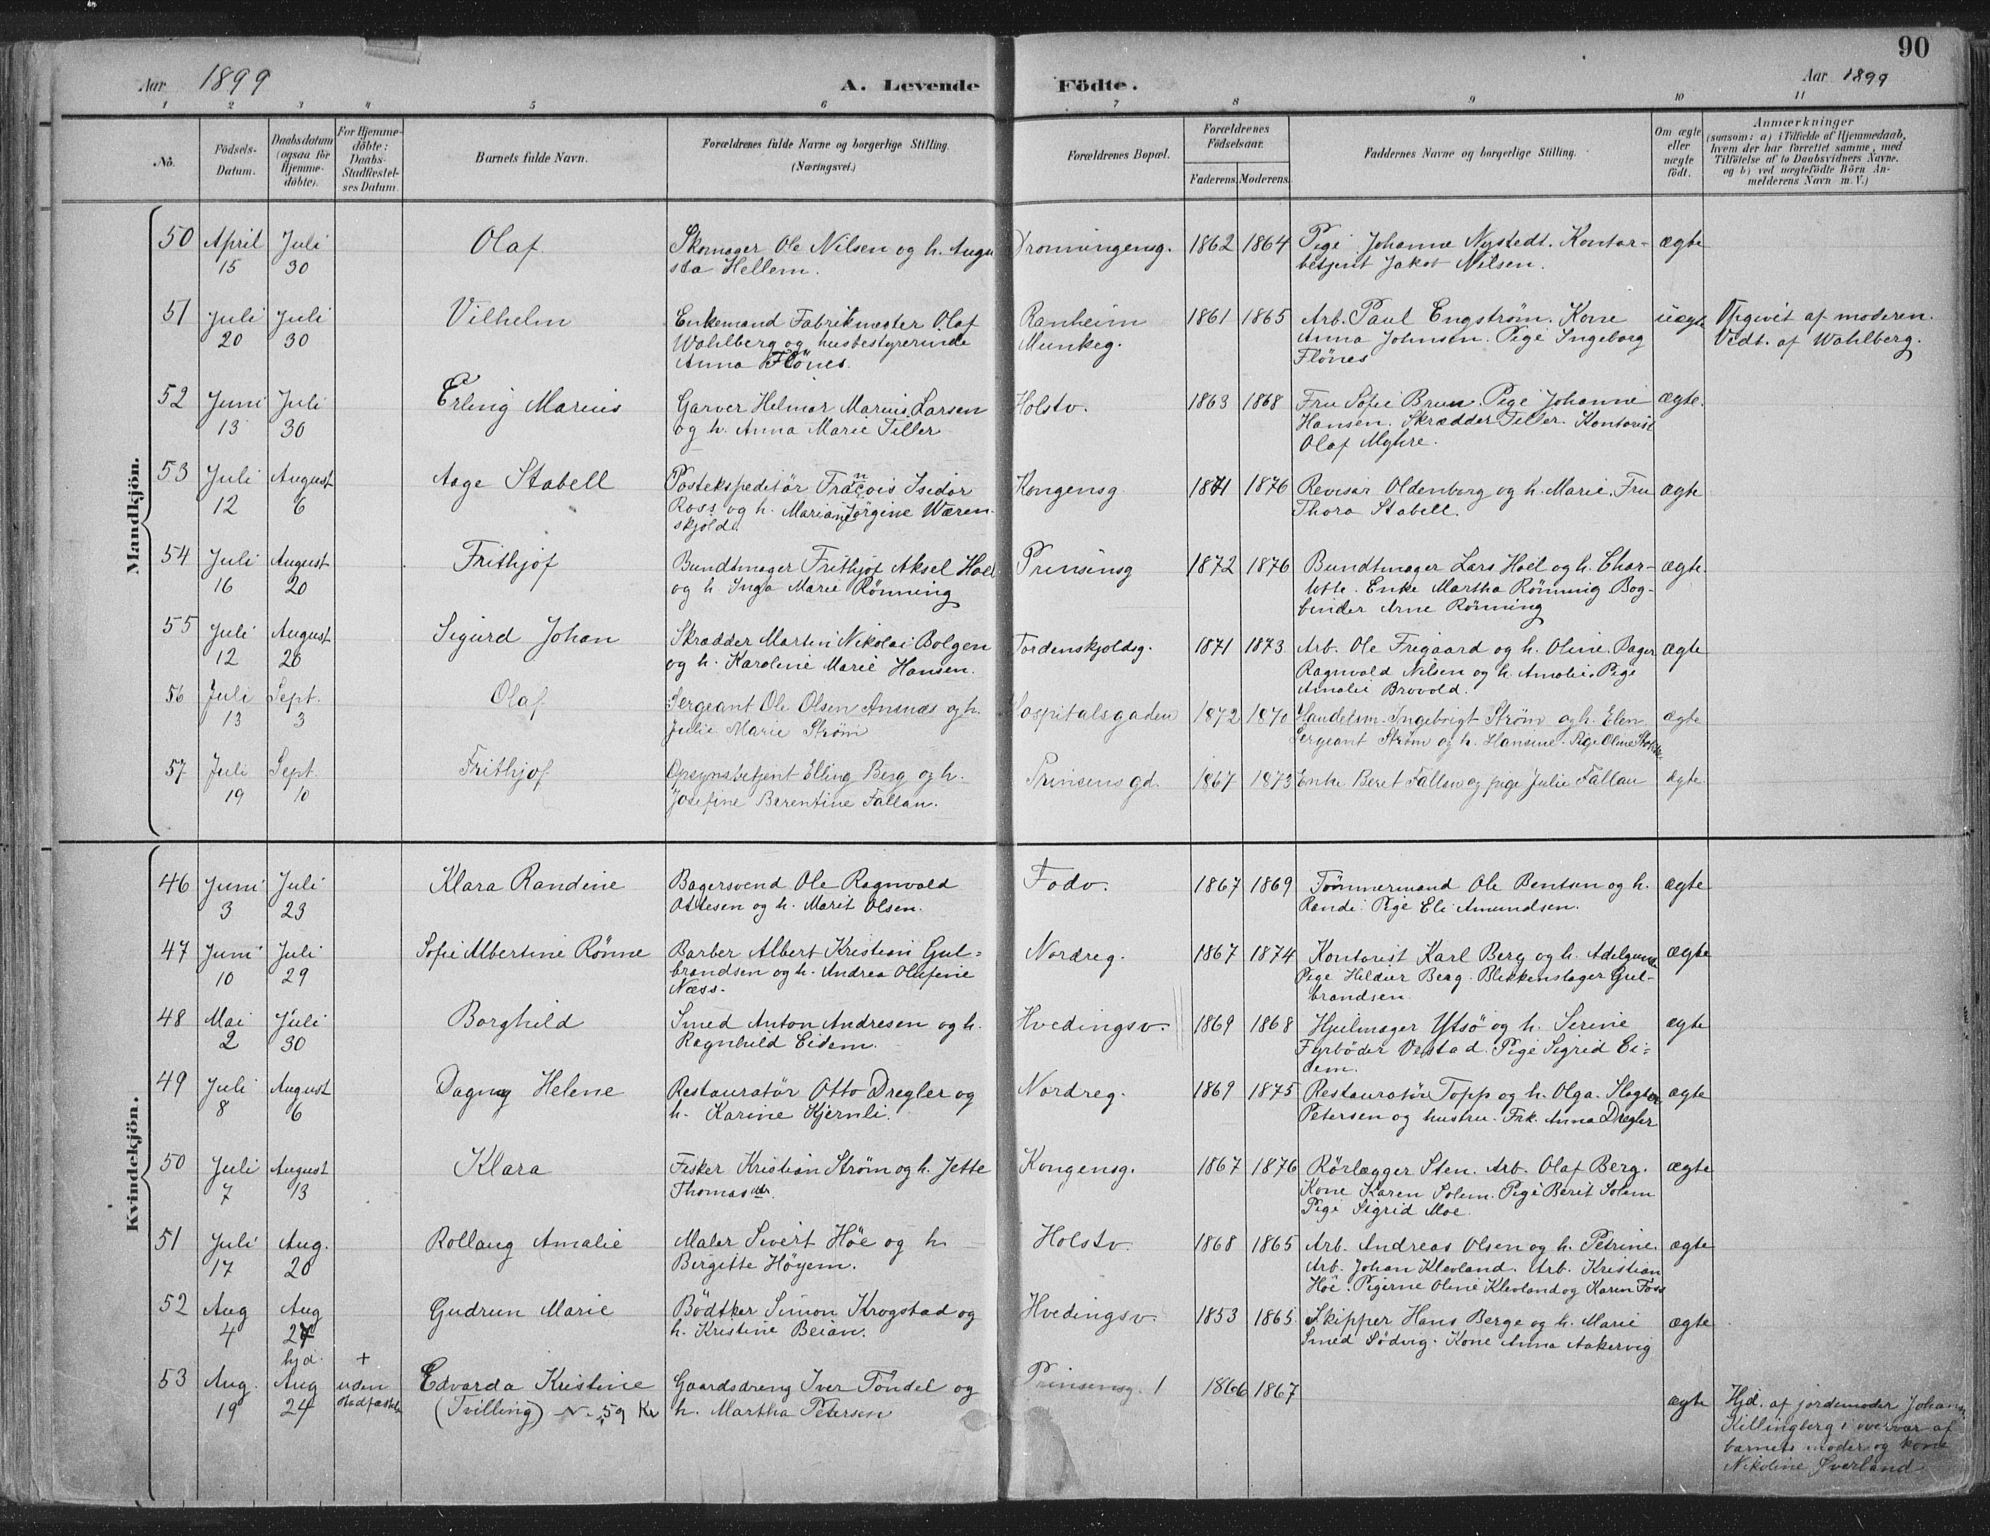 90
Aar 1899
A. Levende Födte.
Aar 1899
1 2 3 4 5 6 7 8 9 10 11
No.
Födsels-Datum.
Daabsdatum (ogsaa for Hjemme-döbte).
For Hjemme-döbte: Daabs-Stadfæstel-ses Datum.
Barnets fulde Navn.
Forældrenes fulde Navne og borgerlige Stilling. (Næringsvei.)
Forældrenes Bopæl.
Forældrenes Födselsaar.
Faderens. Moderens.
Faddernes Navne og borgerlige Stilling.
Om ægte eller uægte födt.
Anmærkninger
(saasom: a) i Tilfælde af Hjemmedaab,
hvem der har forrettet samme, med
Tilföielse af to Daabsvidners Navne.
og b) ved uægtefödte Börn An-
melderens Navn m. V.)
Mandkjön.
50 April Juli Olaf Skomager Ole Nilsen og h. Augu Dronningensg. 1862 1864 Pige Johanne Nystedt. Kontor- ægte
15 30 sta Hellem. betjent Jakob Nilsen.
51 Juli Juli Vilhelm Enkemand Fabrikmester Olaf Ranheim 1861 1865 Arb. Paul Engstrøm. Kone uægte Opgivet af moderen.
20 30 Wahlberg og husbestyrerinde Munkeg. Anna Johnsen. Pige Ingeborg Vedt. af Wahlberg.
Anna Flönes. Flönes
52 Juni Juli Erling Marius Garver Helmar Marius Larsen Holstv. 1863 1868 Fru Sofie Brun. Pige Johanne ægte.
13 30 og h. Anna Marie Tiller Hansen. Skrædder Tiller. Kontorist
Olaf Myhre.
53 Juli August Aage Stabell Postekspeditör François Isidor Kongensg 1871 1876 Revisor Oldenborg og h. Marie. Fru ægte
12 6 Ross og h. Mariane Jörgine Wæren- Thora Stabell.
skjold.
54 Juli August Frithjof Bundtmager Frithjof Aksel Hoel Prinsensg 1872 1876 Bundtmager Lars Hoel og h. Char- ægte
16 20 og h. Inga Marie Rönning lotte. Enke Martha Rönning Bog-
binder Arne Rönning
55 Juli August Sigurd Johan Skrædder Martin Nikolai Bolgen Tordenskjoldsg. 1871 1873 Arb. Ole Frigaard og h. Oline. Bager ægte
12 20 og h. Karoline Marie Hansen. Ragnvald Nilsen og h. Amalie. Pige
Amalie Brovold.
56 Juli Sept. Olaf Sergeant Ole Olsen Ansnæs og h. Hospitalsgaden 1872 1870 Handelsm. Ingebrigt Strøm og h. Elen ægte
13 3 Julie Marie Strøm Sergeant Strøm og h. Hansine. Pige Oline
57 Juli Sept. Frithjof Opsynsbetjent Elling Berg og h. Prinsensgd. 1867 1873 Enke Beret Fallan og pige Julie Fallan ægte
19 10 Josefine Berentine Fallan.
Kvindekjön.
46 Juni Juli Klara Randine Bagersvend Ole Ragnvald Fodv. 1867 1869 Tömmermand Ole Bentsen og h. ægte
3 23 Ottesen og h. Marit Olsen. Randi. Pige Eli Amundsen.
47 Juni Juli Sofie Albertine Rönne Barber Albert Kristian Gul- Nordreg. 1867 1874 Kontorist Karl Berg og h. Adelgunde ægte
10 29 brandsen og h. Andrea Olufine Pige Hildur Berg. Blikkenslager Gul-
Næss. brandsen.
48 Mai Juli Borghild Smed Anton Andresen og h. Hvedingsv. 1869 1868 Hjulmager Ytsö og h. Serine ægte
2 30 Ragnhild Eidem. Fyrböder Vestad. Pige Sigrid Ei-
dem.
49 Juli August Dagny Helene Restauratör Otto Dregler og Nordreg. 1869 1875 Restauratör Topp og h. Olga. Slagter ægte
8 6 h. Karine Kjernli. Petersen og hustru. Frk. Anna Dregler
50 Juli August Klara Fisker Kristian Strøm og h. Jette Kongensg. 1867 1876 Rörlægger Sten. Arb. Olaf Berg. ægte
7 13 Thomasdtr. Kone Karen Solem. Pige Berit Solem
Pige Sigrid Moe.
51 Juli Aug. Rollaug Amalie Maler Sivert Höe og h. Holstv. 1868 1865 Arb. Andreas Olsen og h. Petrine. ægte
17 20 Birgitte Höyem. Arb. Johan Klevland. Arb. Kristian
Höe. Pigerne Oline Klevland og Karen Foss
52 Aug Aug Gudrun Marie Bödtker Simon Krogstad og Hvedingsv. 1853 1865 Skipper Hans Berge og h. Marie ægte
4 27 h. Kristine Beian. Smed Södvig. Kone Anna Aakervig
hjd. +
53 Aug. Aug uden Edvarda Kristine Gaardsdreng Iver Töndel og Prinsensg. 1 1866 1867 ægte Hjd. af jordemoder Johanna
19 24 stadfæstelse (Tvilling) N. 59 Kv h. Martha Petersen Killingberg i overvær af
barnets moder og kone
Nikoline Överland